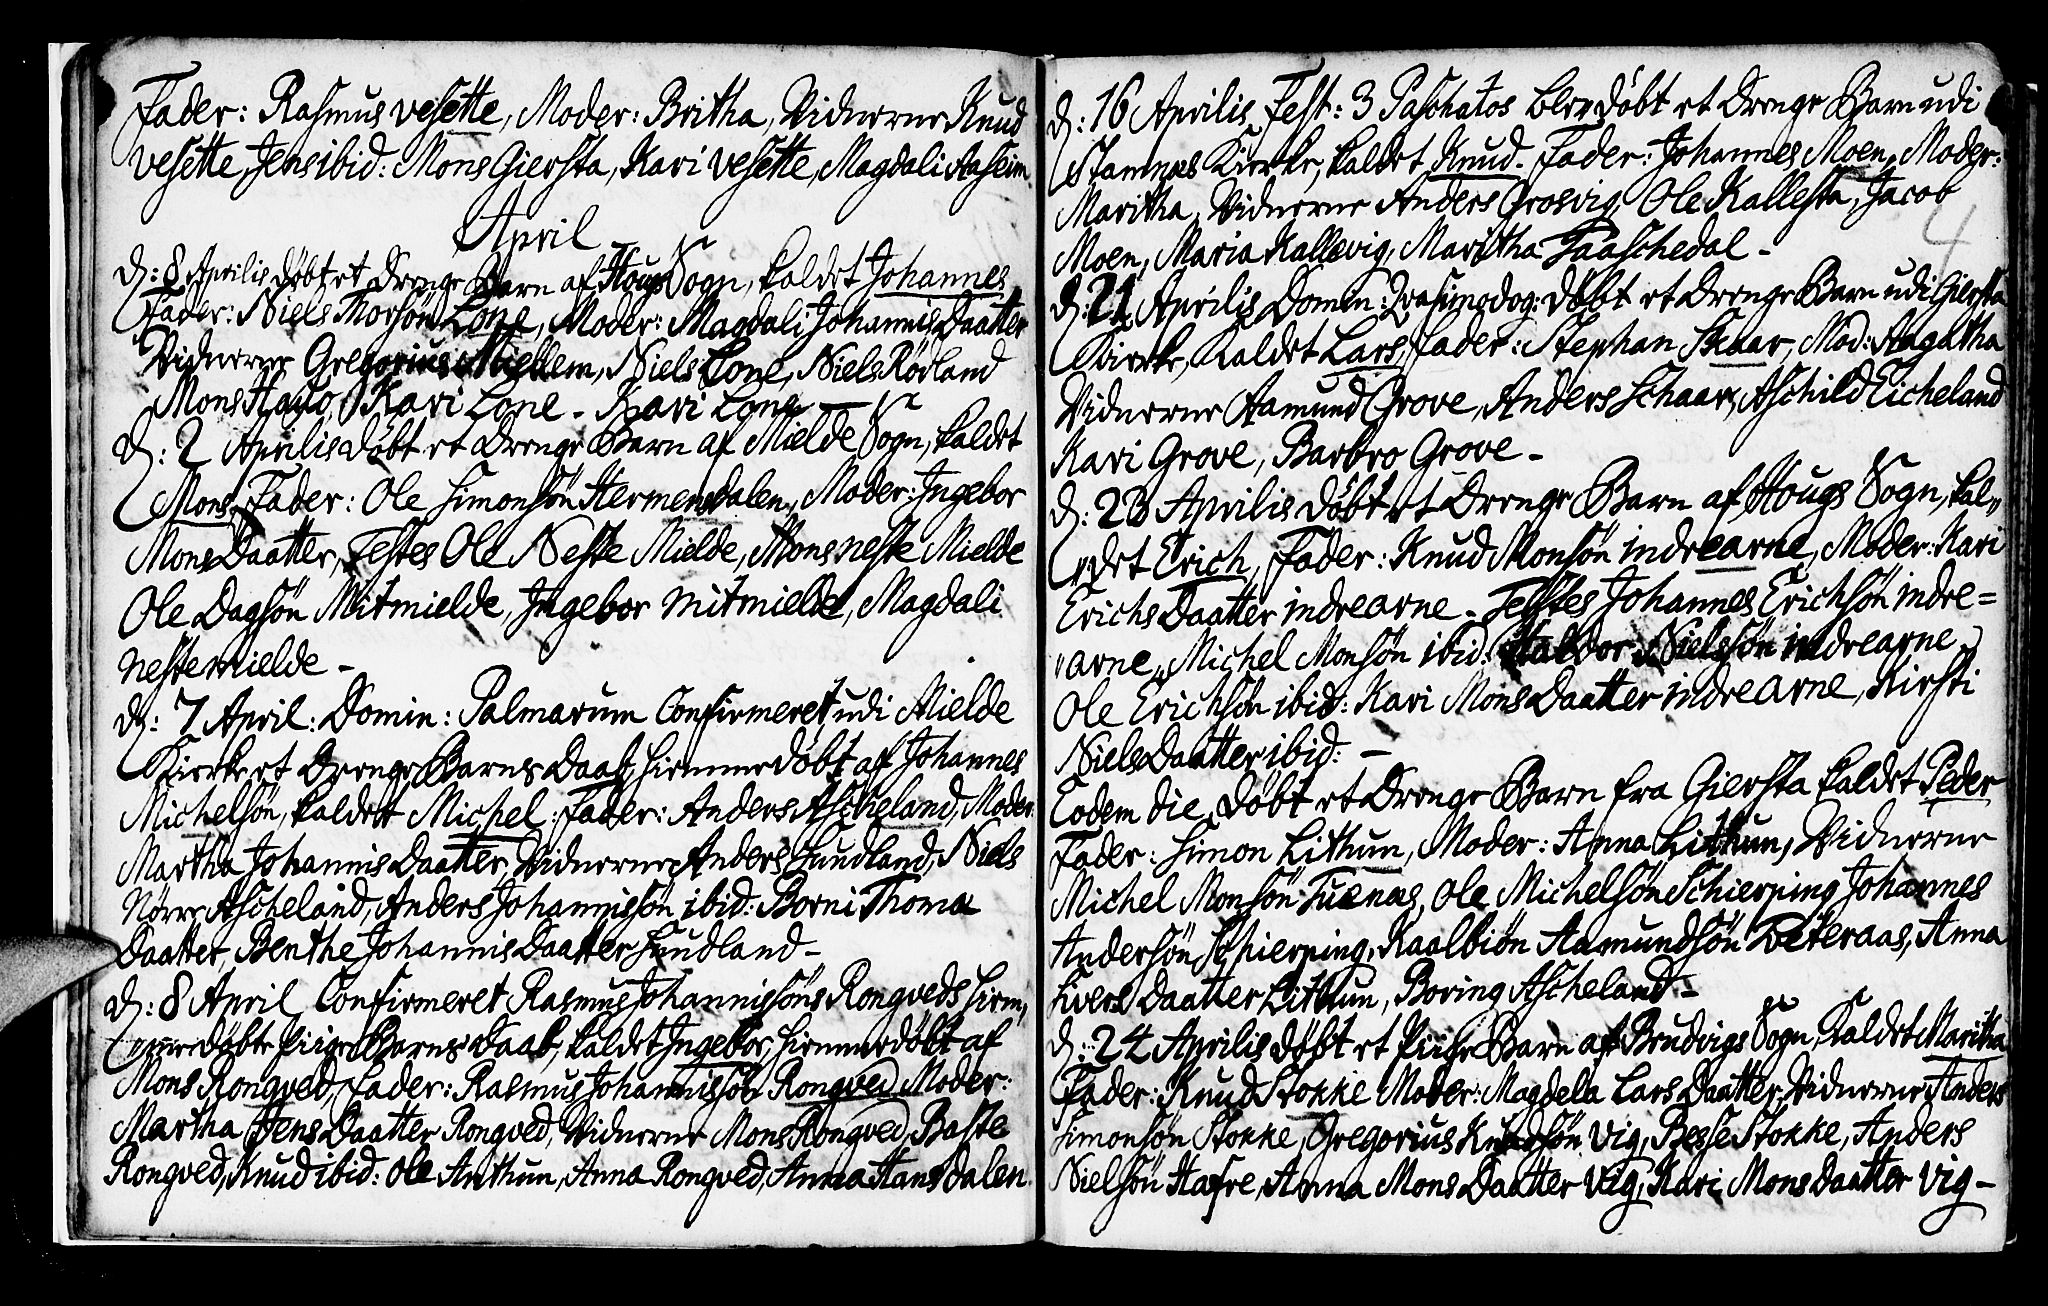 Fader: Rasmus Vesette, Moder: Britha, Vidnerne Knud
Vesette, Jens ibid: Mons Giersta, Kari Vesette, Magdali Aaseim.
April
d: 8 Aprilis døbt et Drenge Barn af Hougs Sogn, kaldet Johannes
Fader: Niels Thorsøn Lone, Moder: Magdali Johannis Daatter
Vidnerne Gregorius Miellem, Niels Lone, Niels Rødland
Mons Haúo, Kari Lone - Kari Lone -
d: 2 Aprilis døbt et Drenge Barn af Mielde Sogn, kaldet
Mons, Fader: Ole Simonsøn Hermensdalen, Moder: Ingebor
Mons Daatter, Testes Ole Neste Mielde, Mons neste Mielde
Ole Dagsøn Mitmielde, Ingebor mitmielde, Magdali
neste mielde -
d: 7 April: Domin: Palmarum Confirmeret udi Mielde
Kierke et Drenge Barns Daab, hiemme døbt af Johannes
Michelsøn, kaldet Michel: Fader: Anders Ascheland, Moder:
Martha Johannis Daatter, Vidnerne Anders Hundland, Niels
Nørre Ascheland, Anders Johannissøn ibid: Borni Thoma
Daatter, Benthe Johannis Daatter Hundland -
d: 8 April Confirmeret Rasmus Johannissøns Rongveds hiem,,
,,me døbte Piige Barns Daab, kaldet Ingebor, hiemme døbt af
Mons Rongved, Fader: Rasmus Johannissøn Rongved Moder:
Martha Jens Daatter Rongved, Vidnerne Mons Rongved, Baste
Rongved, Knud ibid: Ole Anthun, Anna Rongved, Anna Hansdalen.
d: 16 Aprilis Fest: 3 Paschatos blev døbt et Drenge Barn udi
Stamnæs Kierke, kaldet Knud. Fader: Johannes Moen, Moder:
Maritha, Vidnerne Anders Grosvig, Ole Kallesta, Jacob
Moen, Maria Kallevig, Maritha Paaschedal -
4
d: 21 Aprilis Domin: Qvasimodog: døbt et Drenge Barn udi Giersta
Kierke, Kaldet Lars, Fader: Stephan Skaar, Mod: Aagatha
Vidnerne Aamund Grove, Anders Schaar, Aschild Eicheland
Kari Grove, Barbro Grove -
d: 23 Aprilis døbt et Drenge Barn af Hougs Sogn, kal,,
,,det Erich, Fader: Knud Monsøn indrearne, Moder: Kari
Erichs Daatter indrearne - Testes Johannes Erichsøn indre=
,,arne,, Michel Monsøn ibid: Haldor Nielssøn indrearne
Ole Erichsøn ibid: Kari Mons Daatter indrearne, Kirsti
Niels Daatter ibid: -
Eodem die døbt et Drenge Barn fra Giersta kaldet Peder
Fader: Simon Lithun, Moder: Anna Lithun, Vidnerne
Michel Monsøn Tuenæs, Ole Michelsøn Schierping Johannes
Andersøn Schierping, Kaalbiøn Aamundsøn Veteraas, Anna
Sivers Daatter Lithun, Boring Ascheland -
d: 24 Aprilis døbt et Piige Barn af Brudvigs Sogn, Kaldet Maritha
Fader: Knud Stokke Moder: Magdela Lars Daatter, Vidnerne Anders
Simonsøn Stokke, Gregorius Knudsøn Vig, Besse Stokke, Anders
Nielsøn Hafre, Anna Mons Daatter Vig, Kari Mons Daatter Vig -